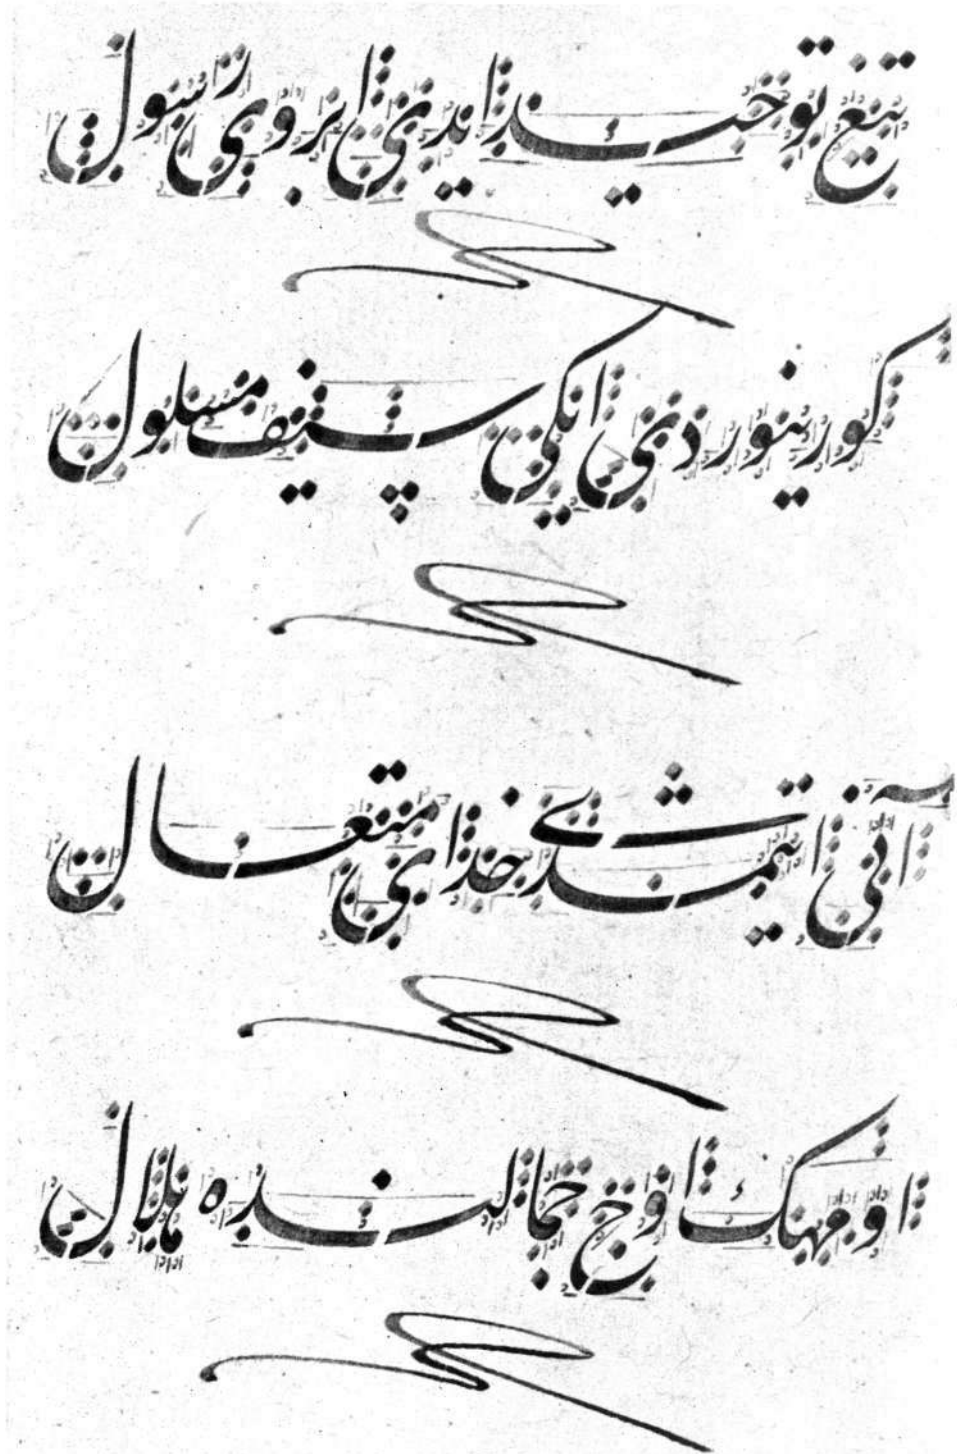 تیغ توحید ایدی ابروی رسول
کورینوردی ایکی سیف مسلول
آنی ایتمشدی خدای متعال
او مهك اوج جمالنده هلال